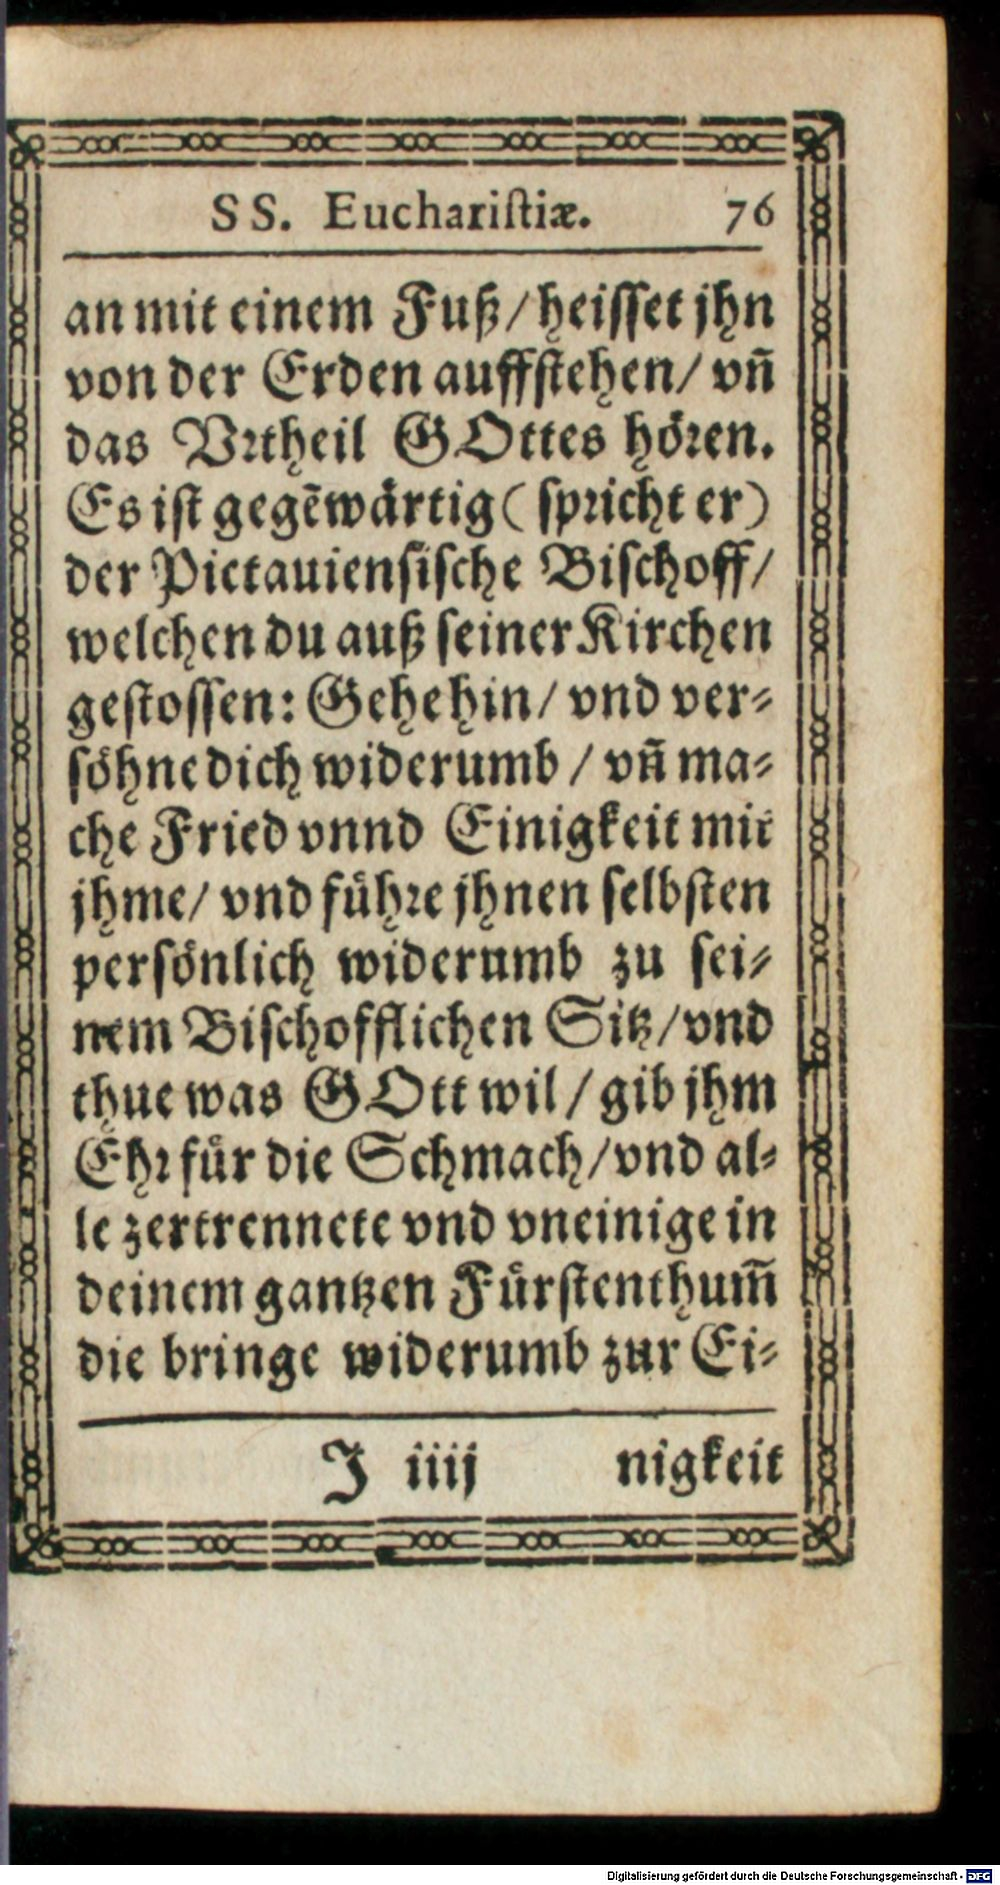 SS. Euchariſtiæ. 76
an mit einem Fuß / heiſſet jhn
von der Erden auffſtehen / vñ
das Vꝛtheil GOttes höꝛen.
Es iſt gegēwärtig ( ſpꝛicht er )
der Pictauienſiſche Biſchoff /
welchen du auß ſeiner Kirchen
geſtoſſen: Gehe hin / vnd ver⸗
ſöhne dich widerumb / vñ ma⸗
che Fried vnnd Einigkeit mit
jhme / vnd fühꝛe jhnen ſelbſten
perſönlich widerumb zu ſei⸗
nem Biſchofflichen Sitz / vnd
thue was GOtt wil / gib jhm
Ehꝛ für die Schmach / vnd al⸗
le zertrennete vnd vneinige in
deinem gantzen Fürſtenthum̃
die bringe widerumb zur Ei⸗
J iiij nigkeit
Digitalisierung gefördert durch die Deutsche Forschungsgemeinschaft - DFG